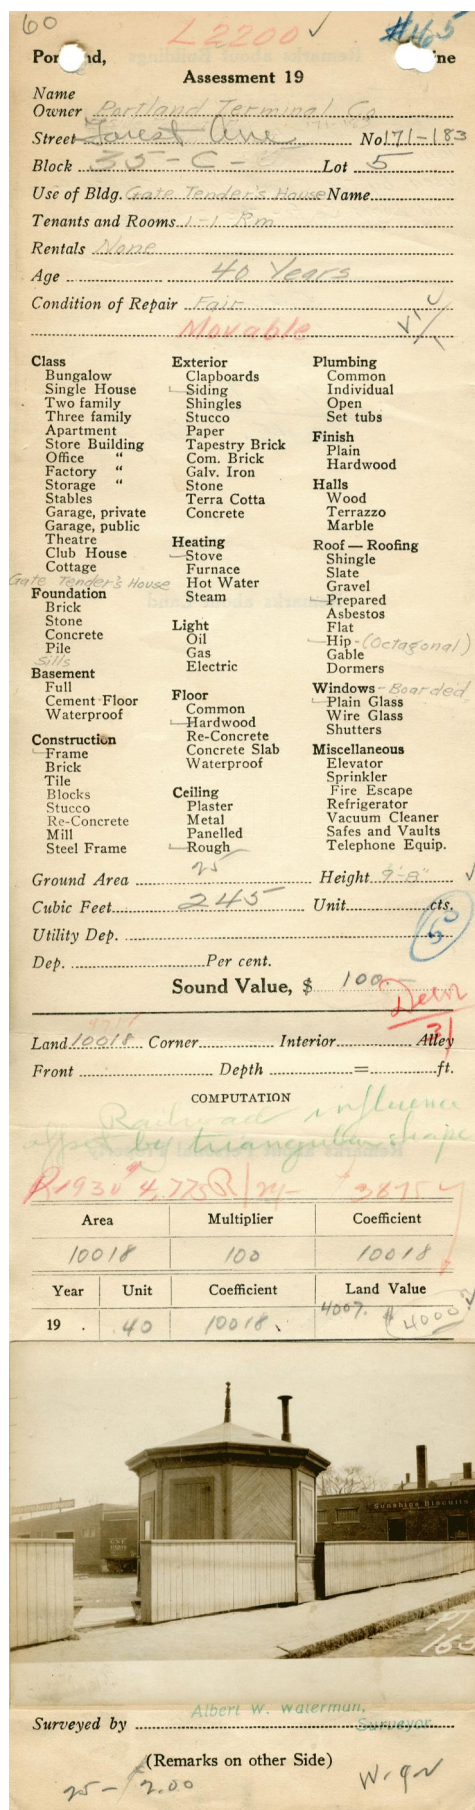 60
L2200 ✓
#465
Portland, ine
Assessment 19
Name
Owner Portland Terminal Co
Street Forest Ave No 171-183
Block 35-C- Lot 5
Use of Bldg. Gate Tender's House Name
Tenants and Rooms 1-1 Rm
Rentals None
Age 40 Years
Condition of Repair Fair
Movable
Class
Bungalow
Single House
Two family
Three family
Apartment
Store Building
Office "
Factory "
Storage "
Stables
Garage, private
Garage, public
Theatre
Club House
Cottage
Gate Tender's House
Foundation
Brick
Stone
Concrete
Pile
Sills
Basement
Full
Cement Floor
Waterproof
Construction
Frame
Brick
Tile
Blocks
Stucco
Re-Concrete
Mill
Steel Frame
Exterior
Clapboards
Siding
Shingles
Stucco
Paper
Tapestry Brick
Com. Brick
Galv. Iron
Stone
Terra Cotta
Concrete
Heating
Stove
Furnace
Hot Water
Steam
Light
Oil
Gas
Electric
Floor
Common
Hardwood
Re-Concrete
Concrete Slab
Waterproof
Ceiling
Plaster
Metal
Panelled
Rough
Plumbing
Common
Individual
Open
Set tubs
Finish
Plain
Hardwood
Halls
Wood
Terrazzo
Marble
Roof — Roofing
Shingle
Slate
Gravel
Prepared
Asbestos
Flat
Hip - (Octagonal)
Gable
Dormers
Windows - Boarded
Plain Glass
Wire Glass
Shutters
Miscellaneous
Elevator
Sprinkler
Fire Escape
Refrigerator
Vacuum Cleaner
Safes and Vaults
Telephone Equip.
Ground Area 25 Height 9'-8" ✓
Cubic Feet 245 Unit cts.
Utility Dep.
50
Dep. Per cent.
Sound Value, $ 100
31
Land 10018 Corner Interior Alley
Front Depth = ft.
COMPUTATION
Railroad influence
offset by triangular shape
R1930 $4,775
3875
Area Multiplier Coefficient
10018 100 10018
Year Unit Coefficient Land Value
19 . .40 10018. 4007. $4000 ✓
Sunshine Biscuits
Surveyed by Albert W. Waterman,
Surveyor
(Remarks on other Side)
25- $2.00